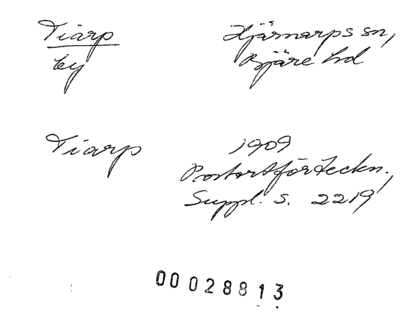 Tiarp Hjärnarps sn,
by Bjäre hd
Tiarp 1909
Postortförteckn.,
Suppl. s. 2219
00028813